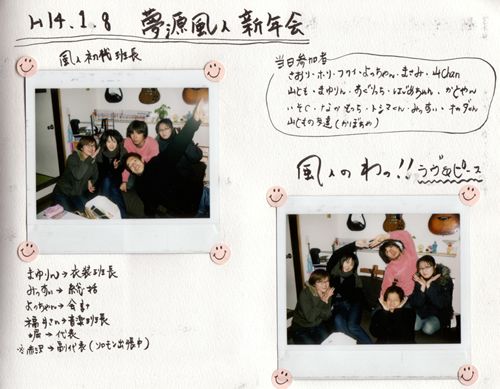 H14.1.8 夢源風人新年会
風人初代班長
当日参加者
さおり・ホリ・フクイ・よっちゃん・まさみ・山Chan
山じも・まゆりん・あぐりっち・はにめちゃん・かどやん
いそじ・なかもっち・トシマくん・みっすい・チカダん
山じもの友達(かぼちゃ)
風人のわっ!!ラヴ&ピース
まゆりん→衣装班長
みっすい→総括
よっちゃん→会計
福井さん→音楽班長
堀→代表
※赤沢→副代表(ソロモン出張中)